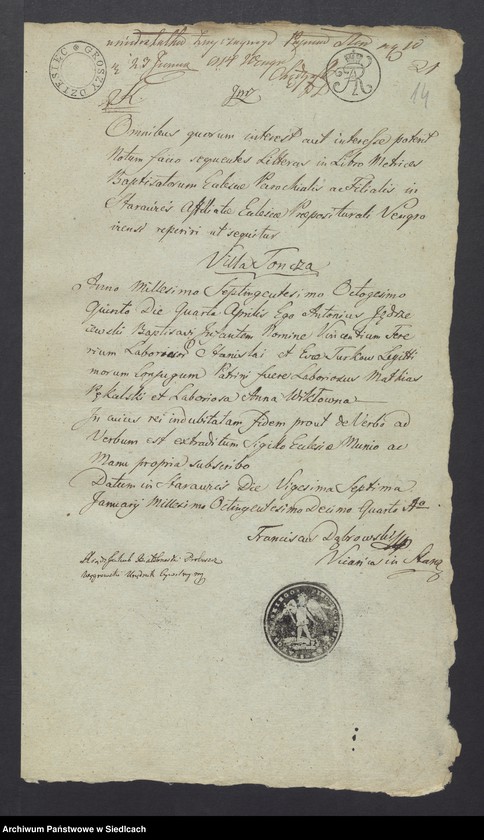 GROSZY DZIESIEC
23
1814
21
14
Omnibus quorum interest aut interesse potent
Notum facio sequentes Litteras in Libro Metrices
Baptisatorum Eulesiæ Parochialis ac Filialis in
Starawies Affiliatæ Eulesiæ Præpositurali Vengro
viensi reperiri ut sequitur
Villa Toncza
Anno Millesimo Septingentesimo Octogesimo
Quinto Die Quarta Aprilis Ego Antonius Jędrze
iewski Baptisavi Infantem Nomine Vincentium Fere
rium Laboriosor Stanislai et Evæ Turkow Legitti
morum Conjugum Patrini fuere Laboriosus Mathias
Pękalski et Laboriosa Anna Wiktowna
In cuius rei indubitatam fidem prout de Verbo ad
Verbum est extraditum Sigillo Eulesiæ Munio ac
Manu propria subscribo
Datum in Starawies Die Vigesima Septima
Januarij Millesimo Octingentesimo Decimo Quarto Ao
Franciscus Dąbrowski
Vicarius in Stara
Archiwum Państwowe w Siedlcach